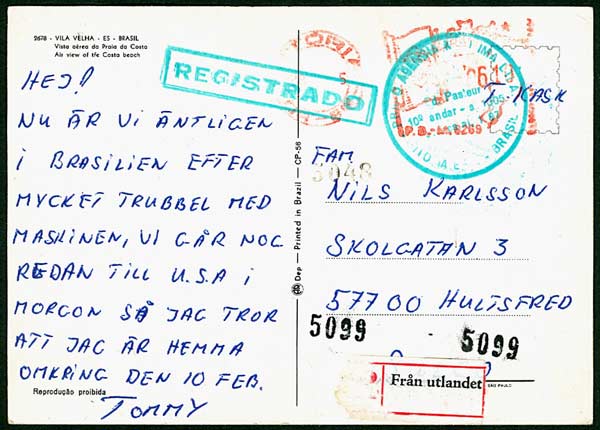 2678 - VILA VELHA - ES - BRASIL
Vista aérea da Praia da Costa
Air view of the Costa beach
HEJ!
NU ÄR VI ÄNTLIGEN
I BRASILIEN EFTER
MYCKET TRUBBEL MED
MASKINEN, VI GÅR NOG
REDAN TILL U.S.A I
MORGON SÅ JAG TROR
ATT JAG ÄR HEMMA
OMKRING DEN 10 FEB.
TOMMY
Reprodução proibida
Dep — Printed in Brazil — CP-56
REGISTRADO
Pasteur
10º andar - a
BRASIL
T. KASK
FAM.
3048
NILS KARLSSON
SKOLGATAN 3
577 00 HULTSFRED
5099
5099
Från utlandet
SÃO PAULO